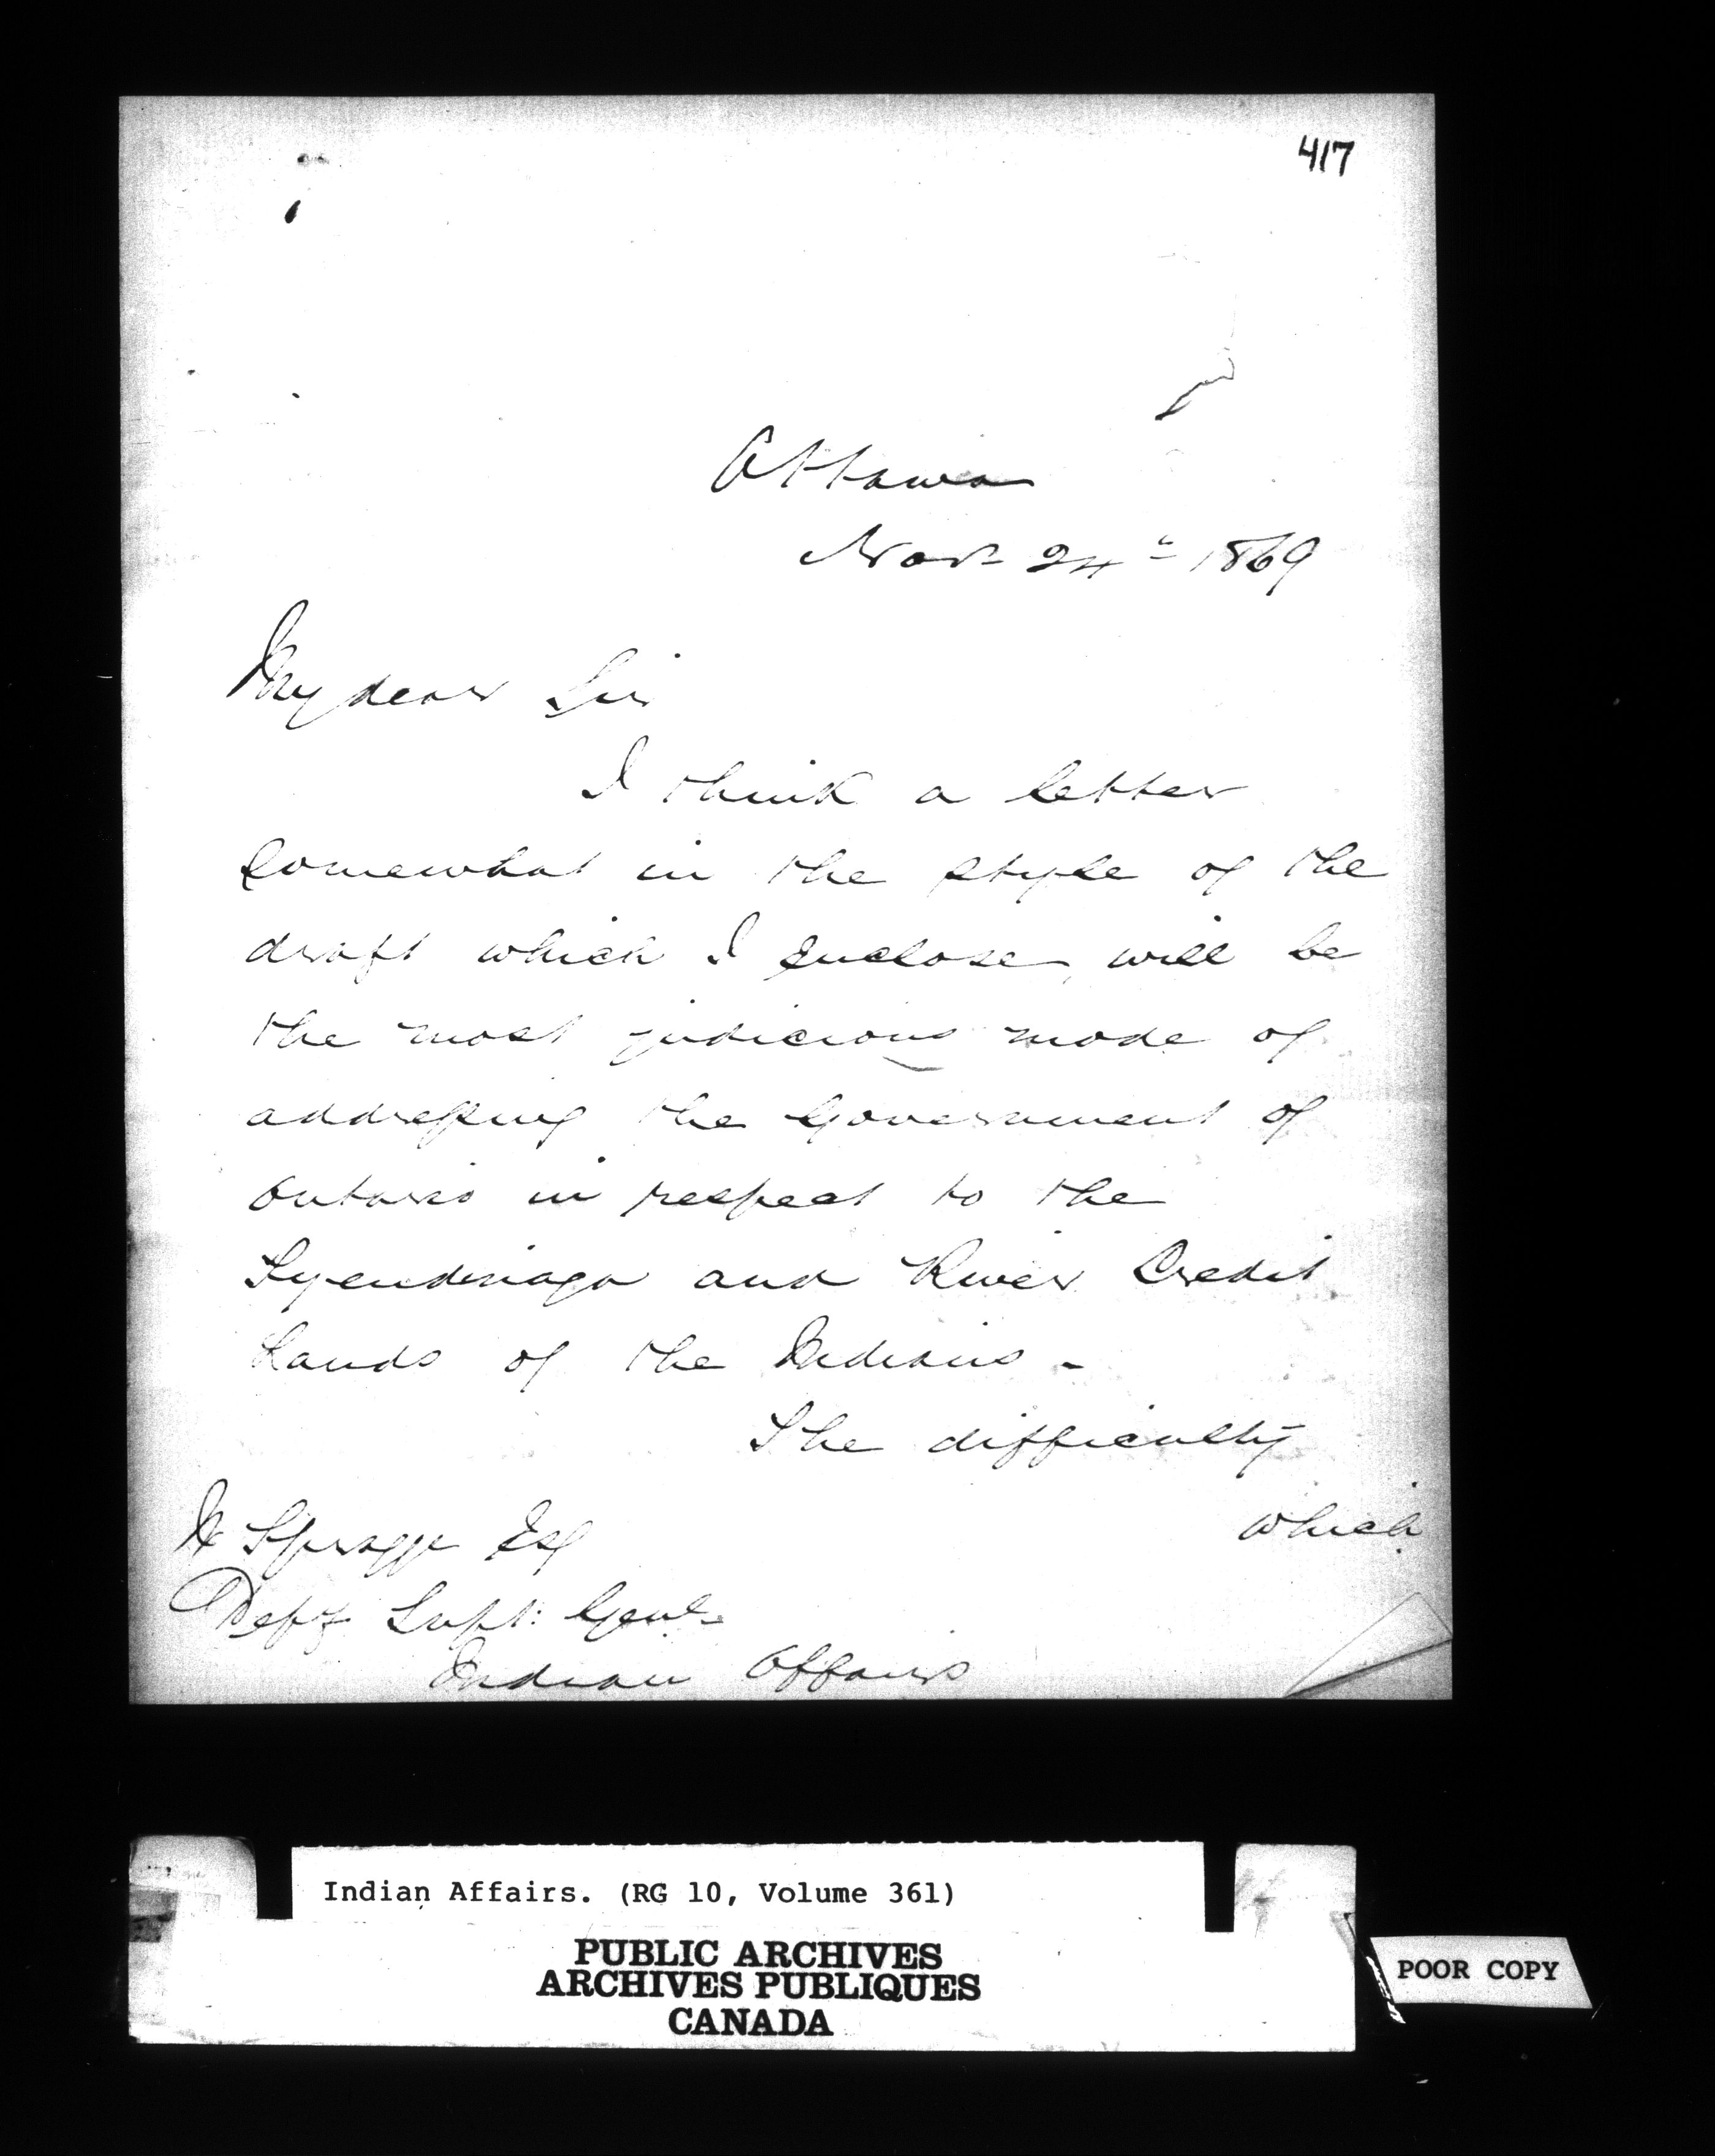 417
Ottawa
Nov. 24th 1869
My dear Sir
I think a letter
somewhat in the style of the
draft which I enclose, will be
the most judicious mode of
addressing the Government of
Ontario in respect to the
Tyendinaga and River Credit
Lands of the Indians -
The difficulty
which
W Spragge Esq
Depy Supt: Genl.
Indian Affairs
Indian Affairs. (RG 10, Volume 361)
PUBLIC ARCHIVES
ARCHIVES PUBLIQUES
CANADA
POOR COPY